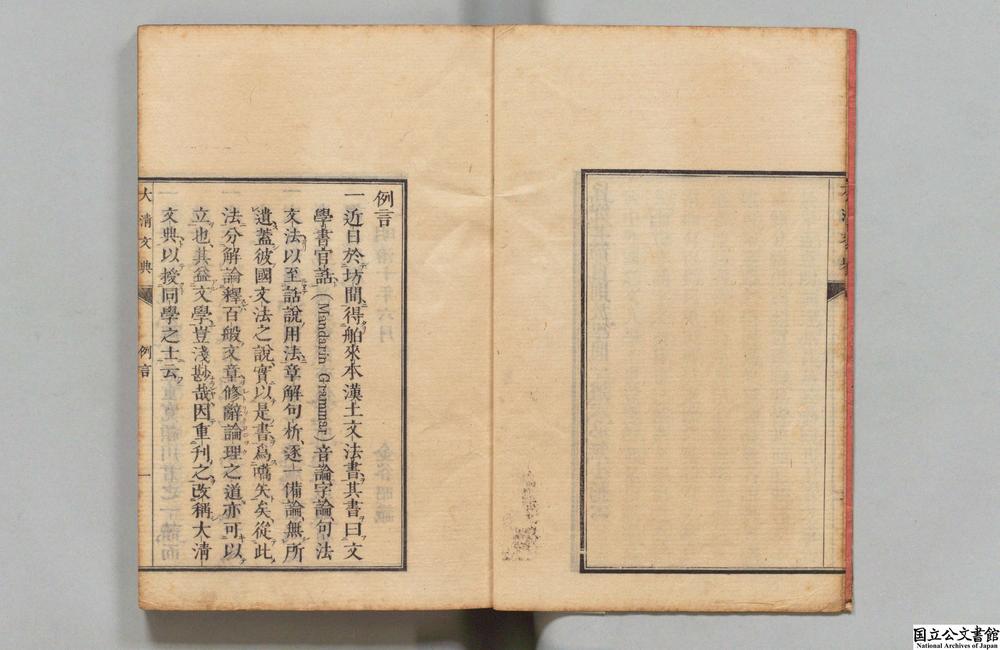 例言
一近日於坊間得舶來本漢土文法書其書曰文
學書官話(Mandarin Grammar)音論字論句法
文法以至話說用法章解句析逐一備論無所
遺蓋彼國文法之說實以是書爲嚆矢矣從此
法分解論釋百般文章修辭論理之道亦可以
立也其益文學豈淺尠哉因重刊之改稱大淸
文典以授同學之士云
大淸文典
例言
一
国立公文書館
National Archives of Japan